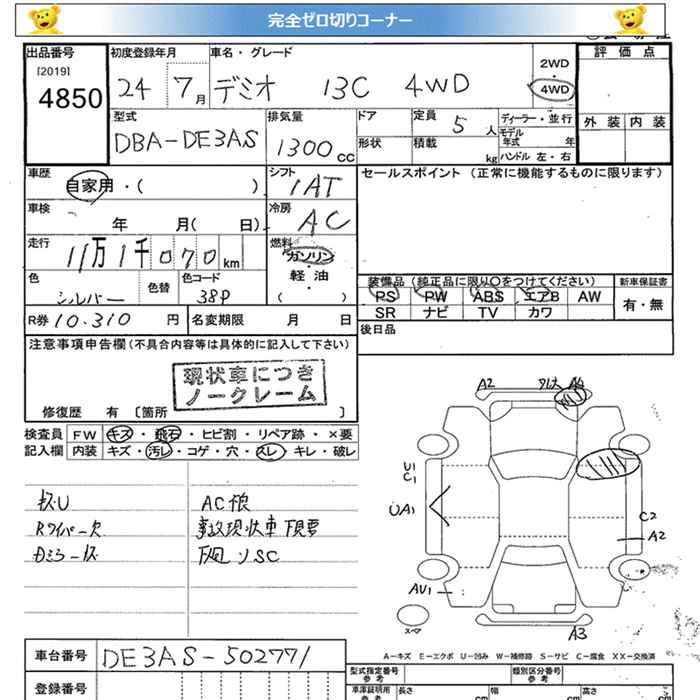 完全ゼロ切りコーナー
出品番号
[2019]
4850
初度登録年月
24 7月
車名・グレード
デミオ 13C 4WD
2WD
・
4WD
評価点
外装 内装
型式
DBA-DE3AS
排気量
1300cc
ドア
形状
定員 5人
積載 kg
ディーラー・並行
モデル年式 年
ハンドル 左・右
車歴
自家用・( )
シフト
1AT
セールスポイント (正常に機能するものに限ります)
車検
年 月( 日)
冷房
AC
走行
11万1千070km
燃料
ガソリン
・
軽油
・
( )
色
シルバー
色替
色コード
38P
装備品 (純正品に限り○をつけてください)
PS PW ABS エアB AW
SR ナビ TV カワ
新車保証書
有・無
R券 10.310 円
名変期限 月 日
後日品
注意事項申告欄(不具合内容等は具体的に記入して下さい)
現状車につき
ノークレーム
修復歴 有 [箇所 ]
検査員 FW キズ・飛石・ヒビ割・リペア跡・×要
記入欄 内装 キズ・汚レ・コゲ・穴・スレ・キレ・破レ
Rワイパー欠
AC
事故現状車
SC
A2
A4
U1
C1
UA1
C2
A2
AU1
スペア
A3
A-キズ E-エクボ U-凹み W-補修跡 S-サビ C-腐食 XX-交換済
車台番号
DE3AS-502771
登録番号
型式指定番号
参考
類別区分番号
参考
車庫証明用
参考
長さ cm
幅 cm
高さ cm